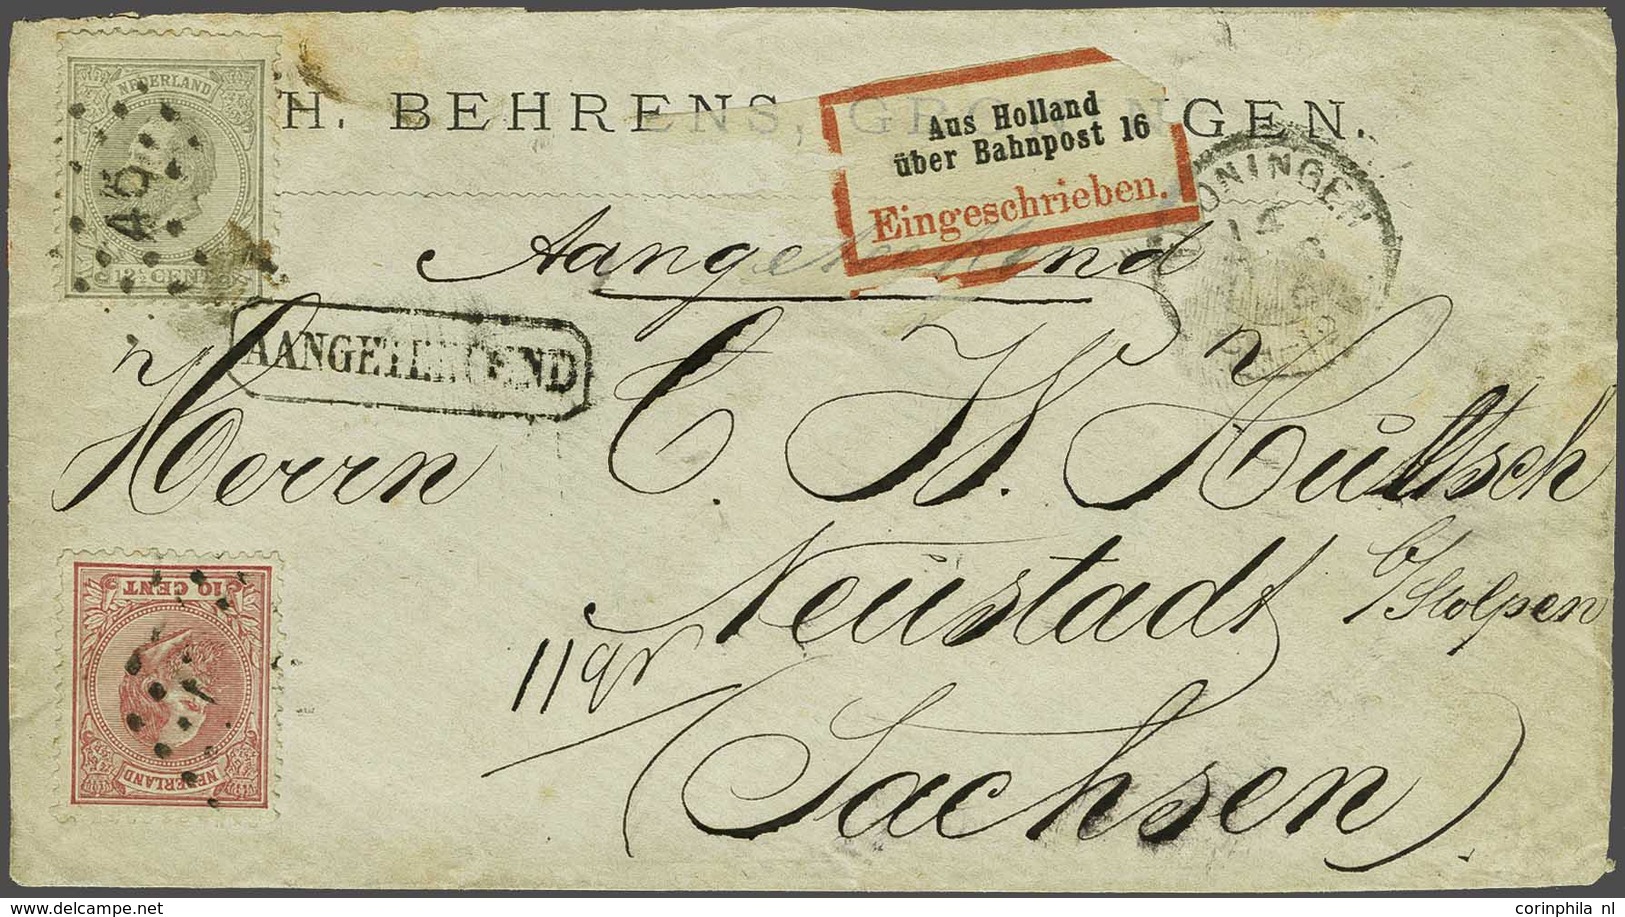 NEDERLAND
45
12½ CENT
H. BEHRENS, GRONINGEN.
Aus Holland
über Bahnpost 16
Eingeschrieben.
GRONINGEN
14
Aangeteekend
AANGETEEKEND
Herrn C. W. Hültsch
Neustadt b/Stolpen
11 gr
(Sachsen)
10 CENT
NEDERLAND
corinphila nl